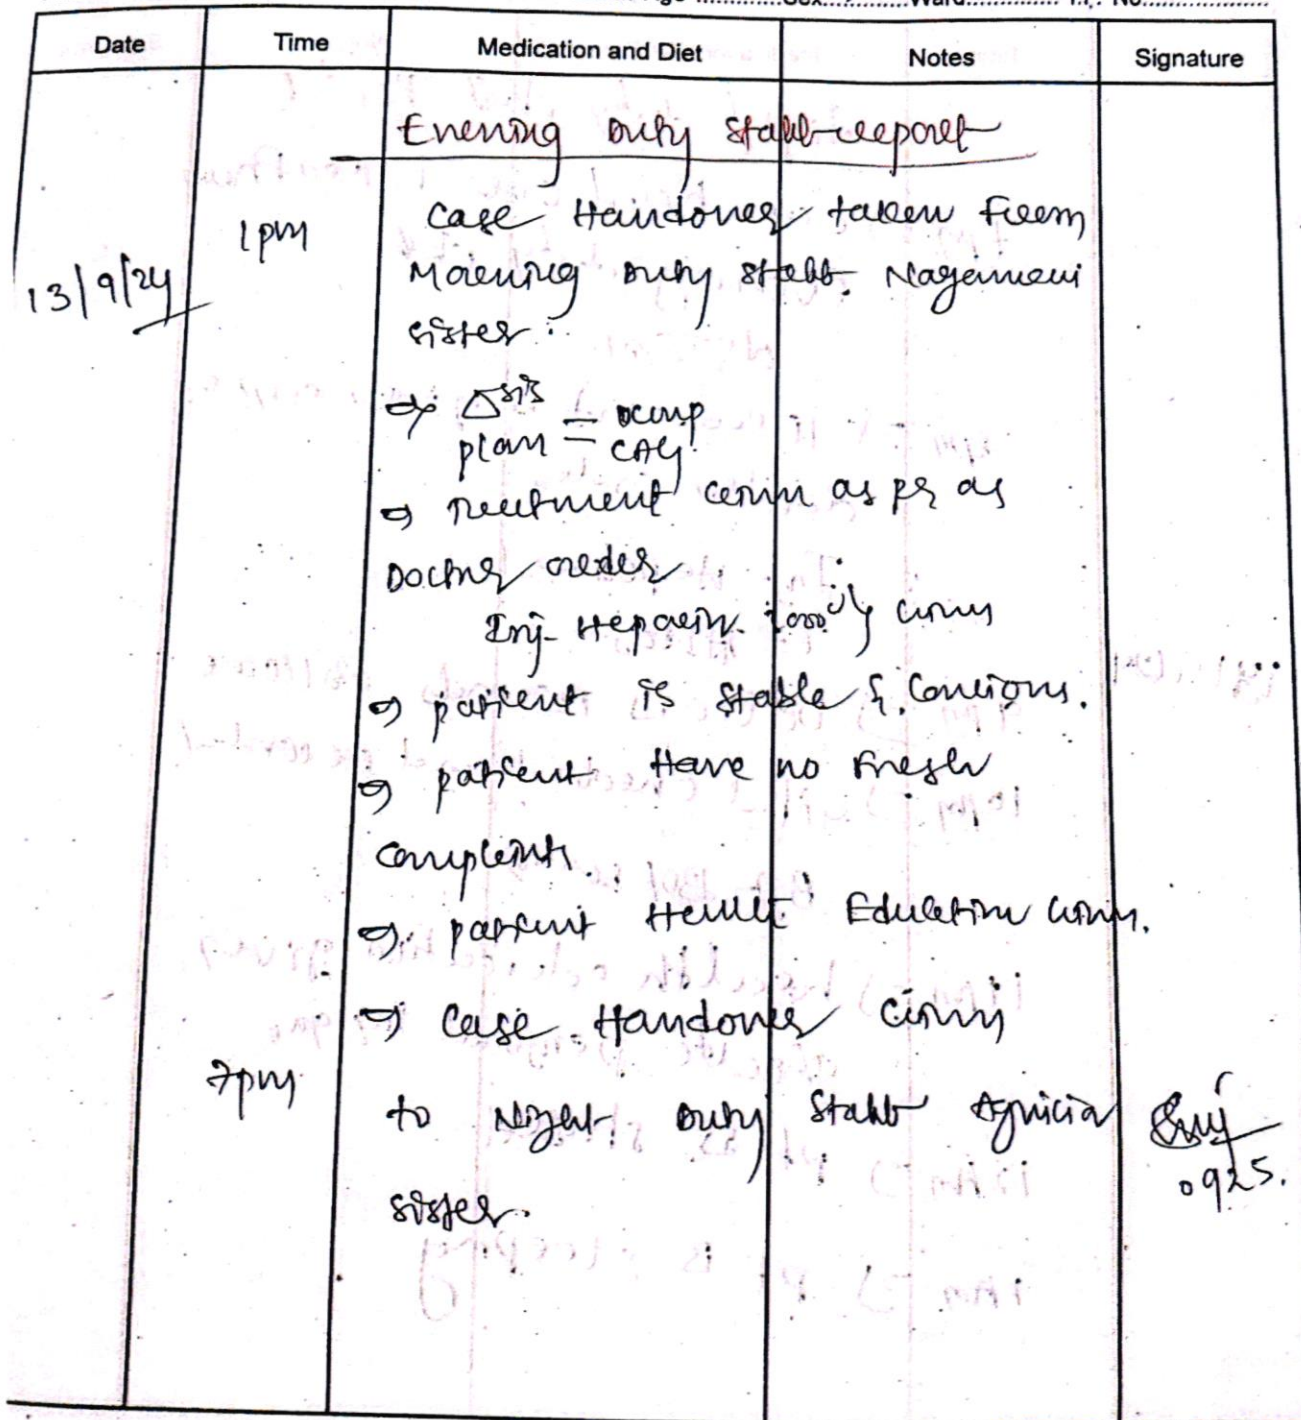 Age ............Sex............Ward............ I.P. No..................
Date Time Medication and Diet Notes Signature
Evening Duty Staff report
1pm Case Handover taken from
13/9/24 Morning Duty Staff. Nagamani
sister.
→ Δsis = DCMP
plan = CAG
→ Treatment given as per as
Doctor order
Inj- Heparin IV given
→ patient is stable & Concious.
→ patient Have no Fresh
complaints.
→ patient Health Education given.
→ Case Handover given
7pm to Night Duty Staff sister.
0925.